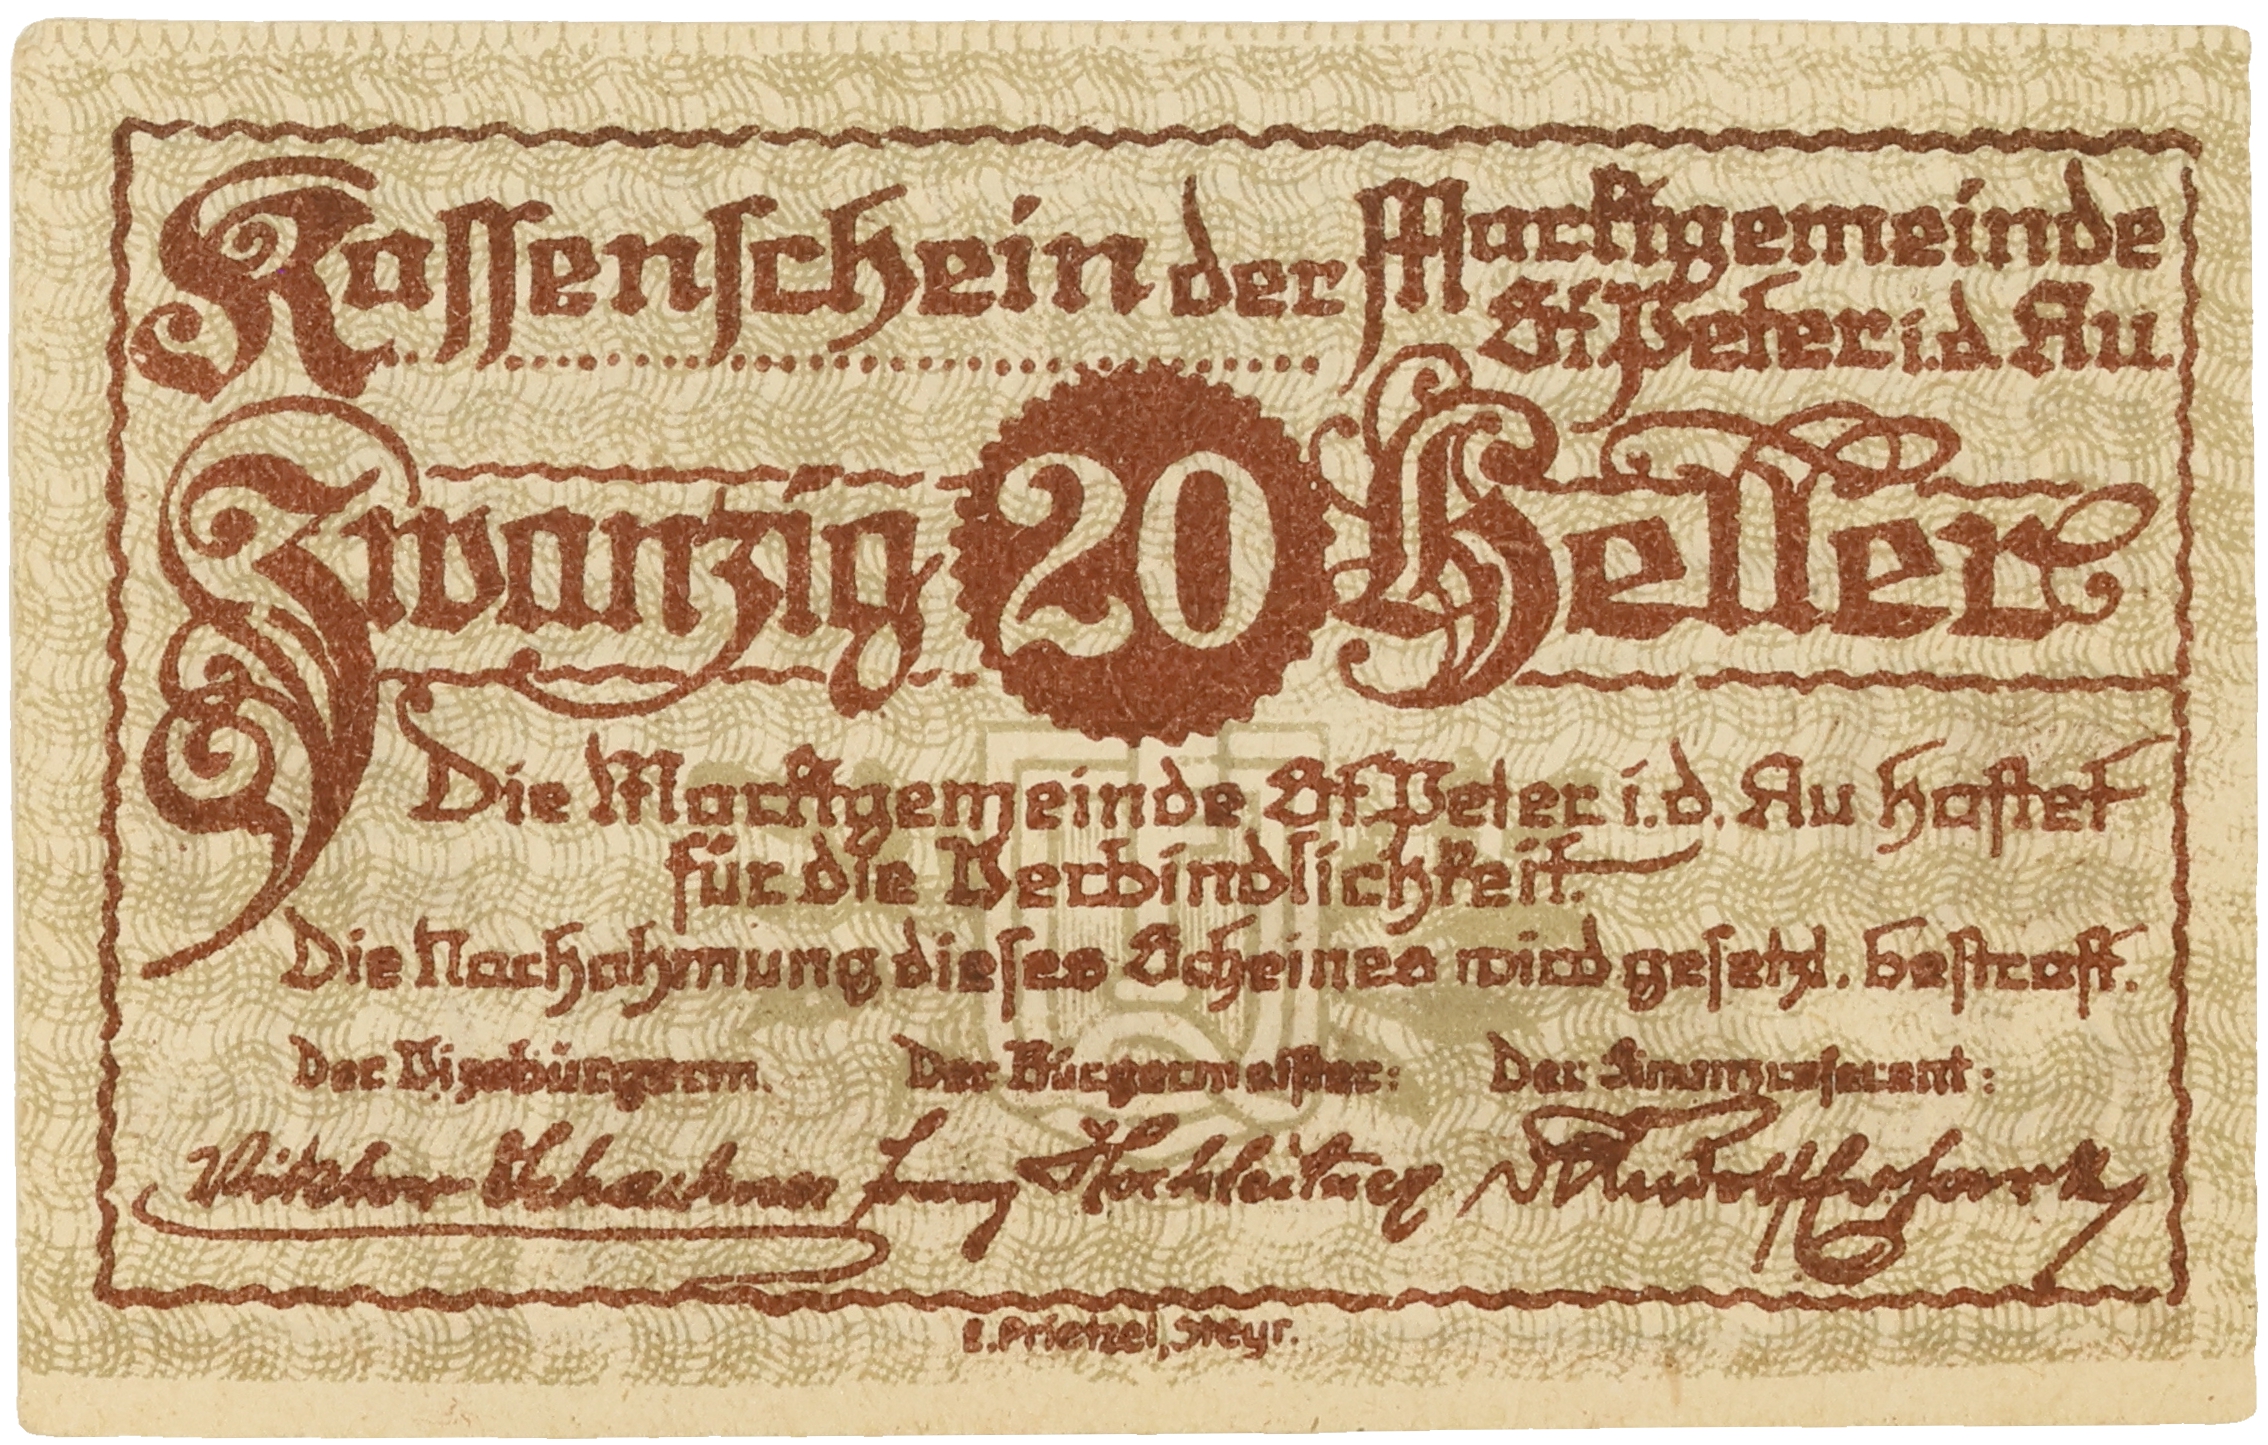 Kassenschein der Marktgemeinde
St. Peter i. d. Au.
Zwanzig 20 Heller
Die Marktgemeinde St. Peter i. d. Au haftet
für die Verbindlichkeit.
Die Nachahmung dieses Scheines wird gesetzl. bestraft.
Der Vizebürgerm. Der Bürgermeister: Der Finanzreferent:
Viktor Schachner Franz Hochleitner Rudolf
E. Prietzel, Steyr.